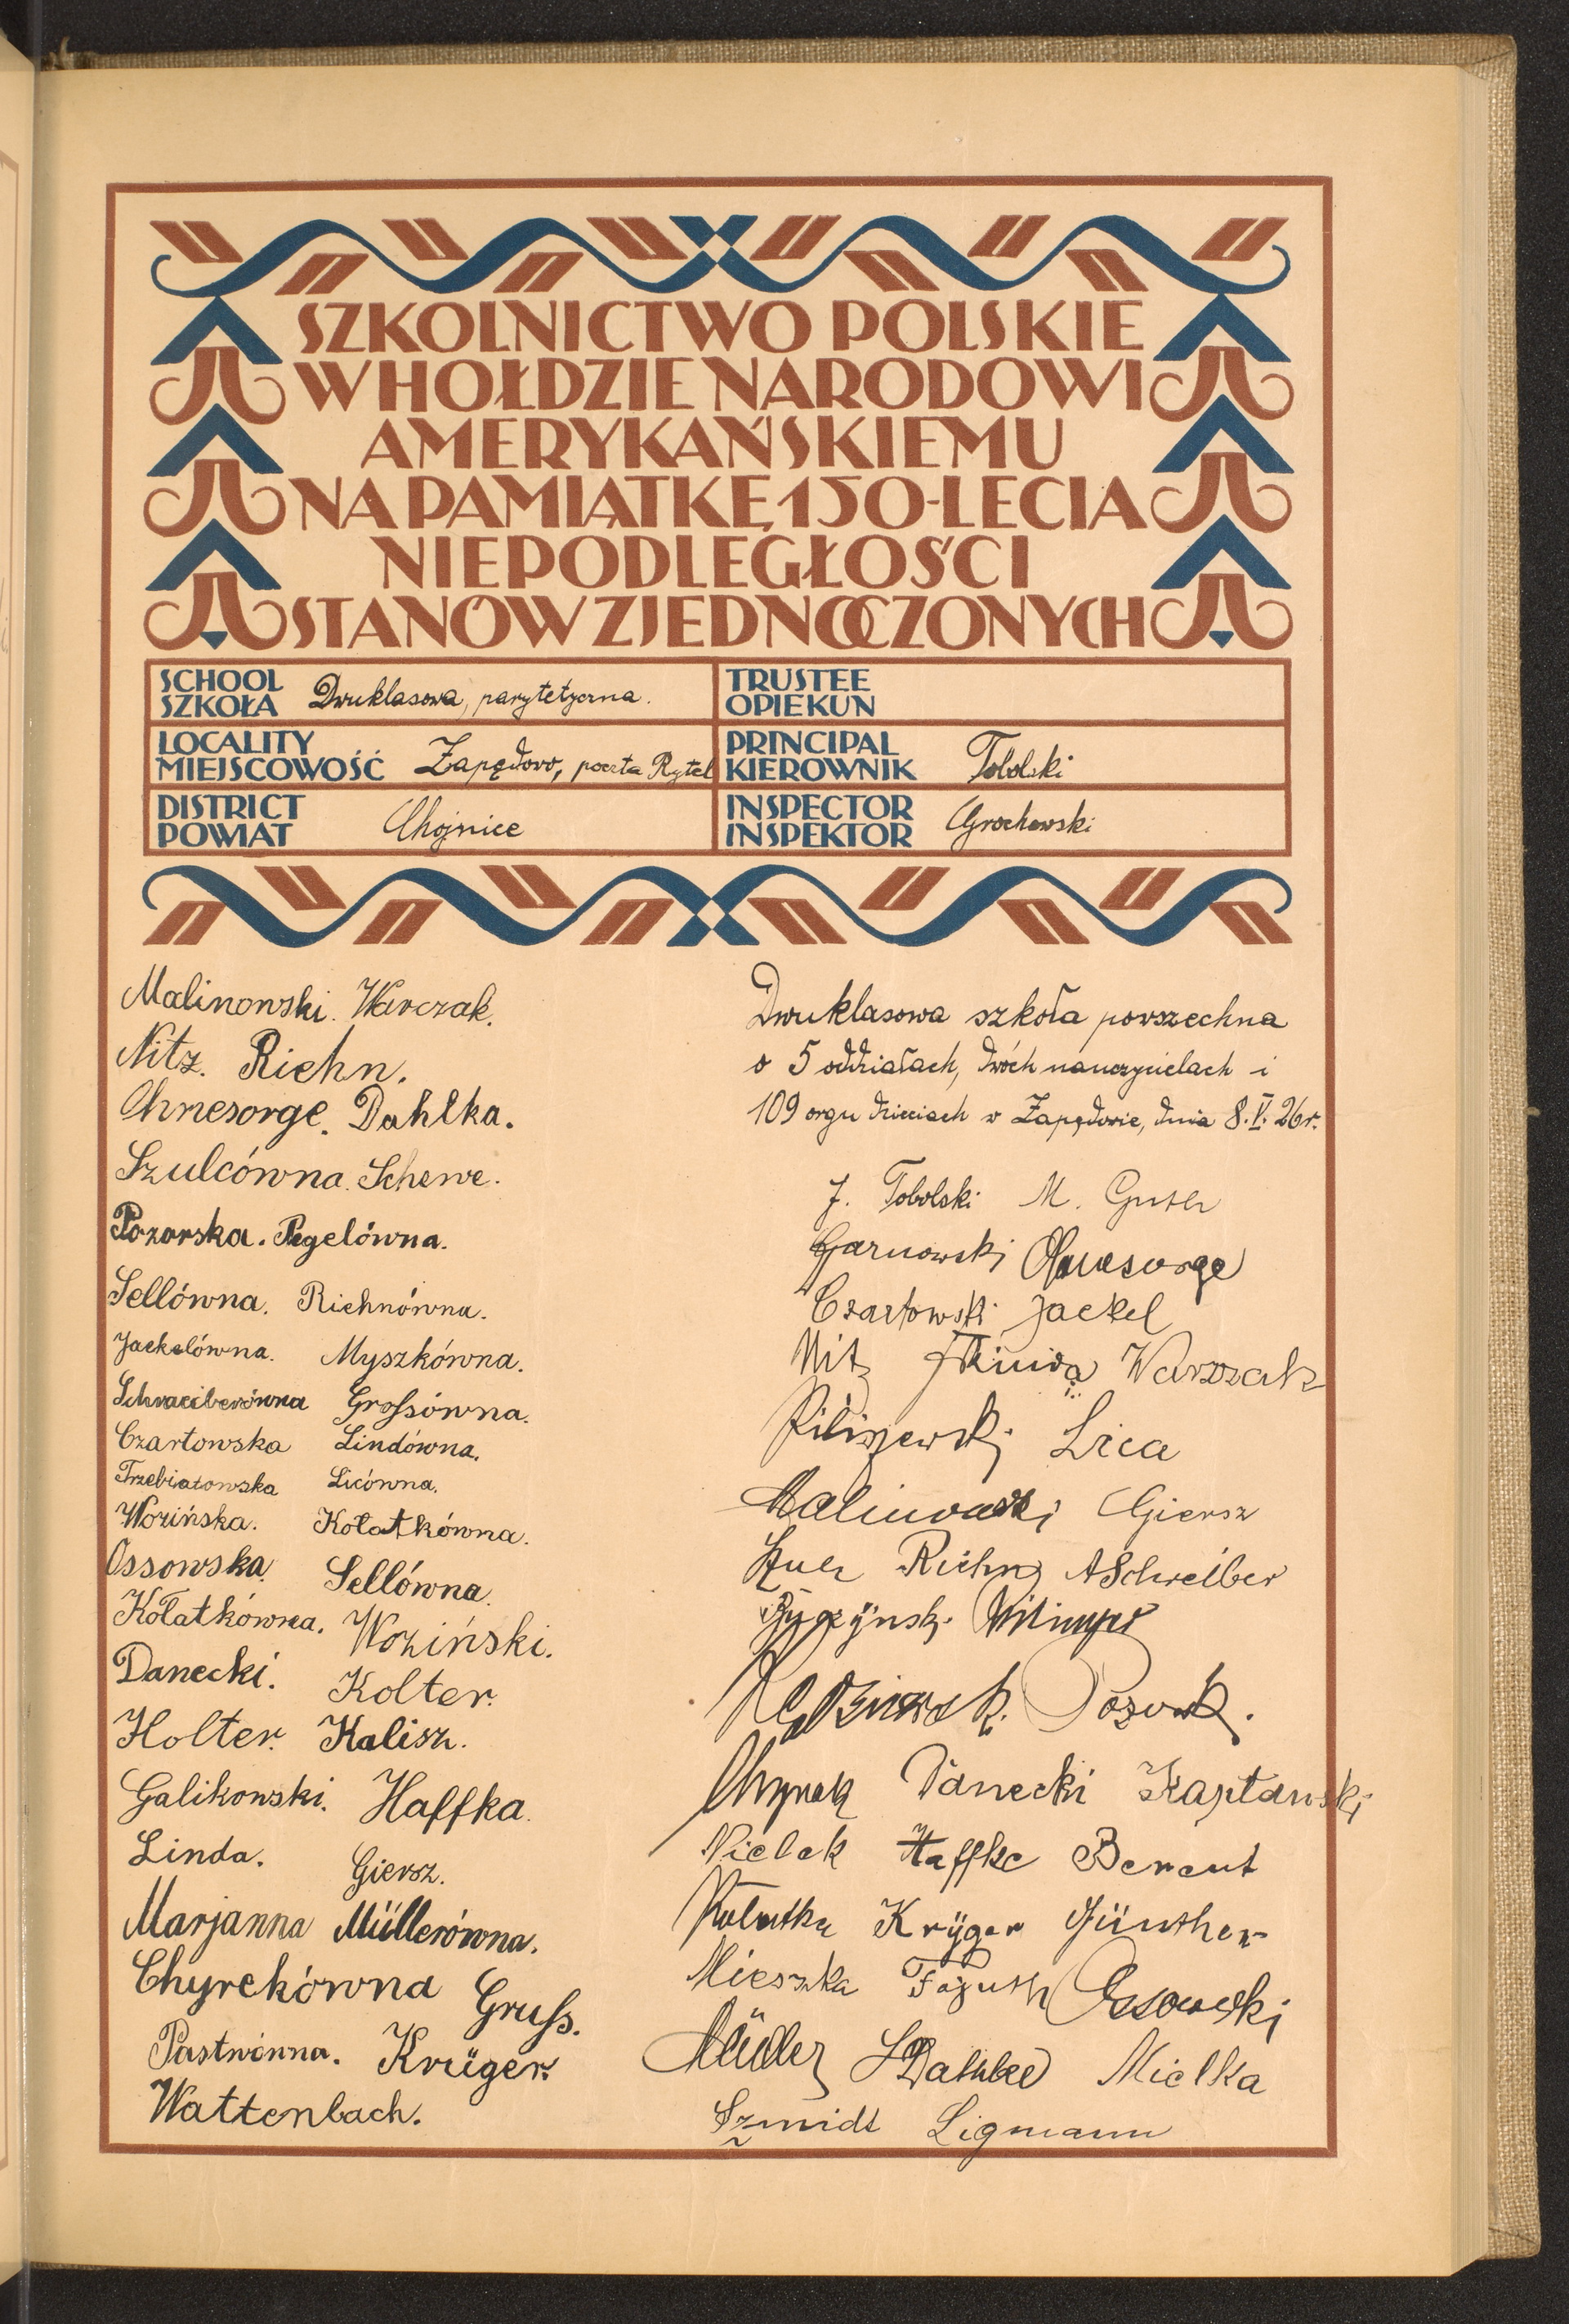 SZKOLNICTWO POLSKIE
W HOŁDZIE NARODOWI
AMERYKAŃSKIEMU
NA PAMIĄTKĘ 150-LECIA
NIEPODLEGŁOŚCI
STANÓW ZJEDNOCZONYCH
SCHOOL
SZKOŁA Dwuklasowa, parytetyczna.
TRUSTEE
OPIEKUN
LOCALITY
MIEJSCOWOŚĆ Zapędowo, poczta Rytel
PRINCIPAL
KIEROWNIK Tobolski
DISTRICT
POWIAT Chojnice
INSPECTOR
INSPEKTOR Grochowski
Malinowski. Warczak.
Nitz. Riehn.
Ohnesorge. Dahlka.
Szulcówna. Schewe.
Pozorska. Pegelówna.
Sellówna. Richnówna.
Jaekelówna. Myszkówna.
Schraeiberówna Großówna.
Czartowska Lindówna.
Trzebiatowska Licówna.
Wozińska. Kołatkówna.
Ossowska. Sellówna.
Kołatkówna. Woziński.
Danecki. Kolter.
Holter. Kalisz.
Galikowski. Haffka.
Linda. Giersz.
Marjanna Müllerówna.
Chyrekówna Gruß.
Pastwówna. Krüger.
Wattenbach.
Dwuklasowa szkoła powszechna
o 5 oddziałach, dwóch nauczycielach i
109 orgu dzieciach w Zapędowie, dnia 8.V.26r.
J. Tobolski M. Guth
Garnowski Ohnesorge
Czartowski Jackel
Nitz Warzzak
Lica
Malinowski Giersz
Szulz Riehn ASchreiber
Pozorsk.
Chyrek Danecki Kaptanski
Nielek Haffke Berent
Kolatka Krÿger Günther
Mieszka Ossowski
Müller Dahlke Mielka
Szmidt Ligmann